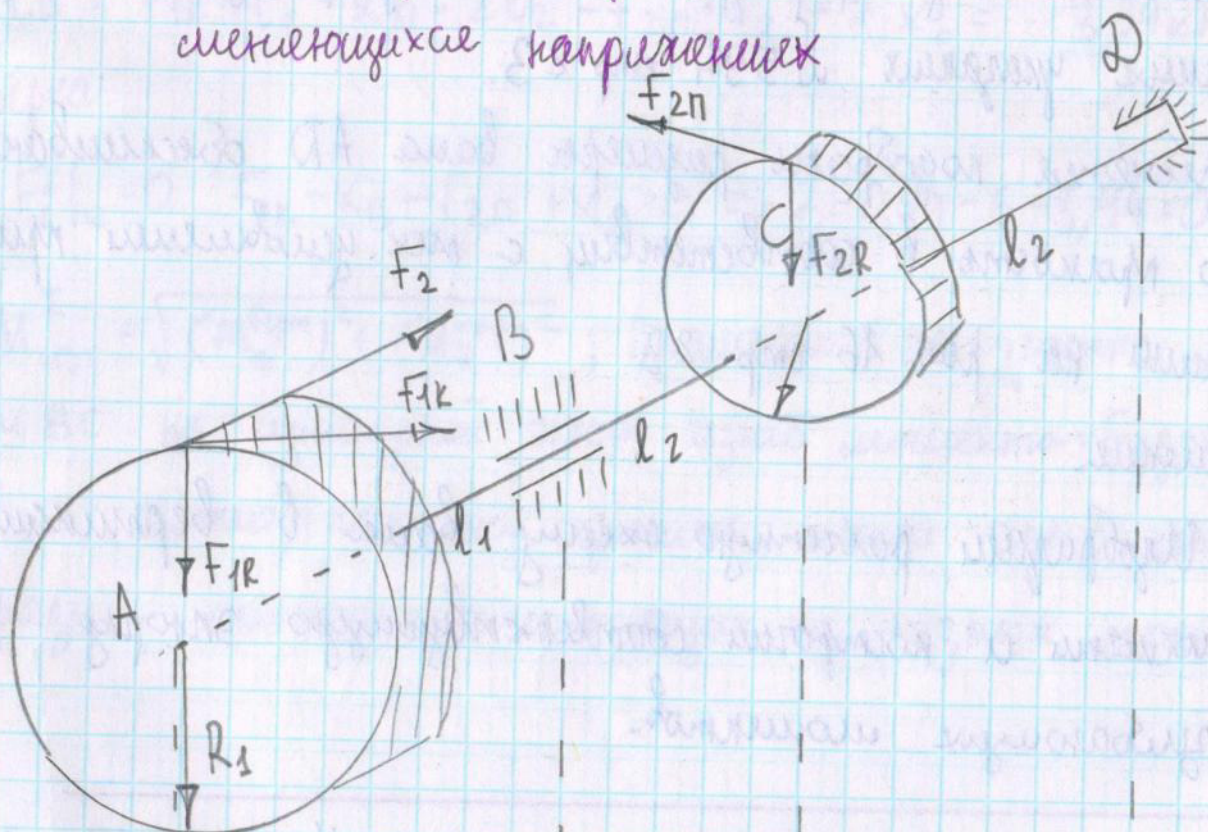 сменяющихся напряжениях
D
F2п
C
F2R
l2
F2
B
F1к
l2
l1
F1R
A
R1